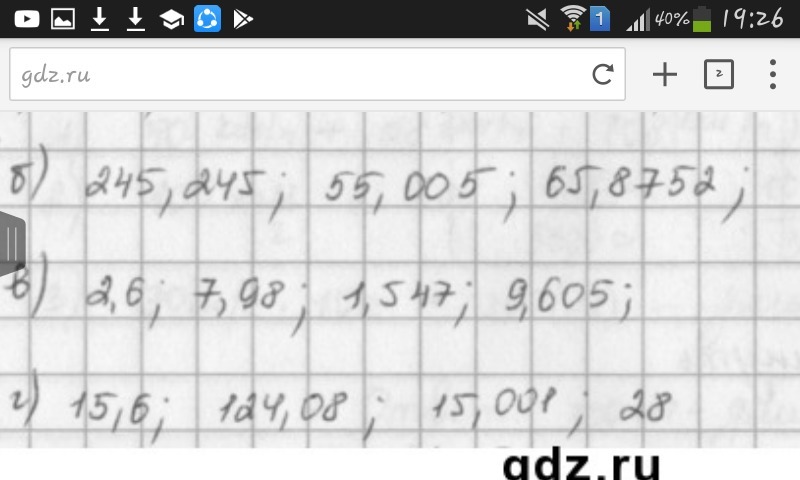 40% 19:26
gdz.ru
б) 245,245; 55,005; 65,8752;
в) 2,6; 7,98; 1,547; 9,605;
г) 15,6; 124,08; 15,001; 28
gdz.ru